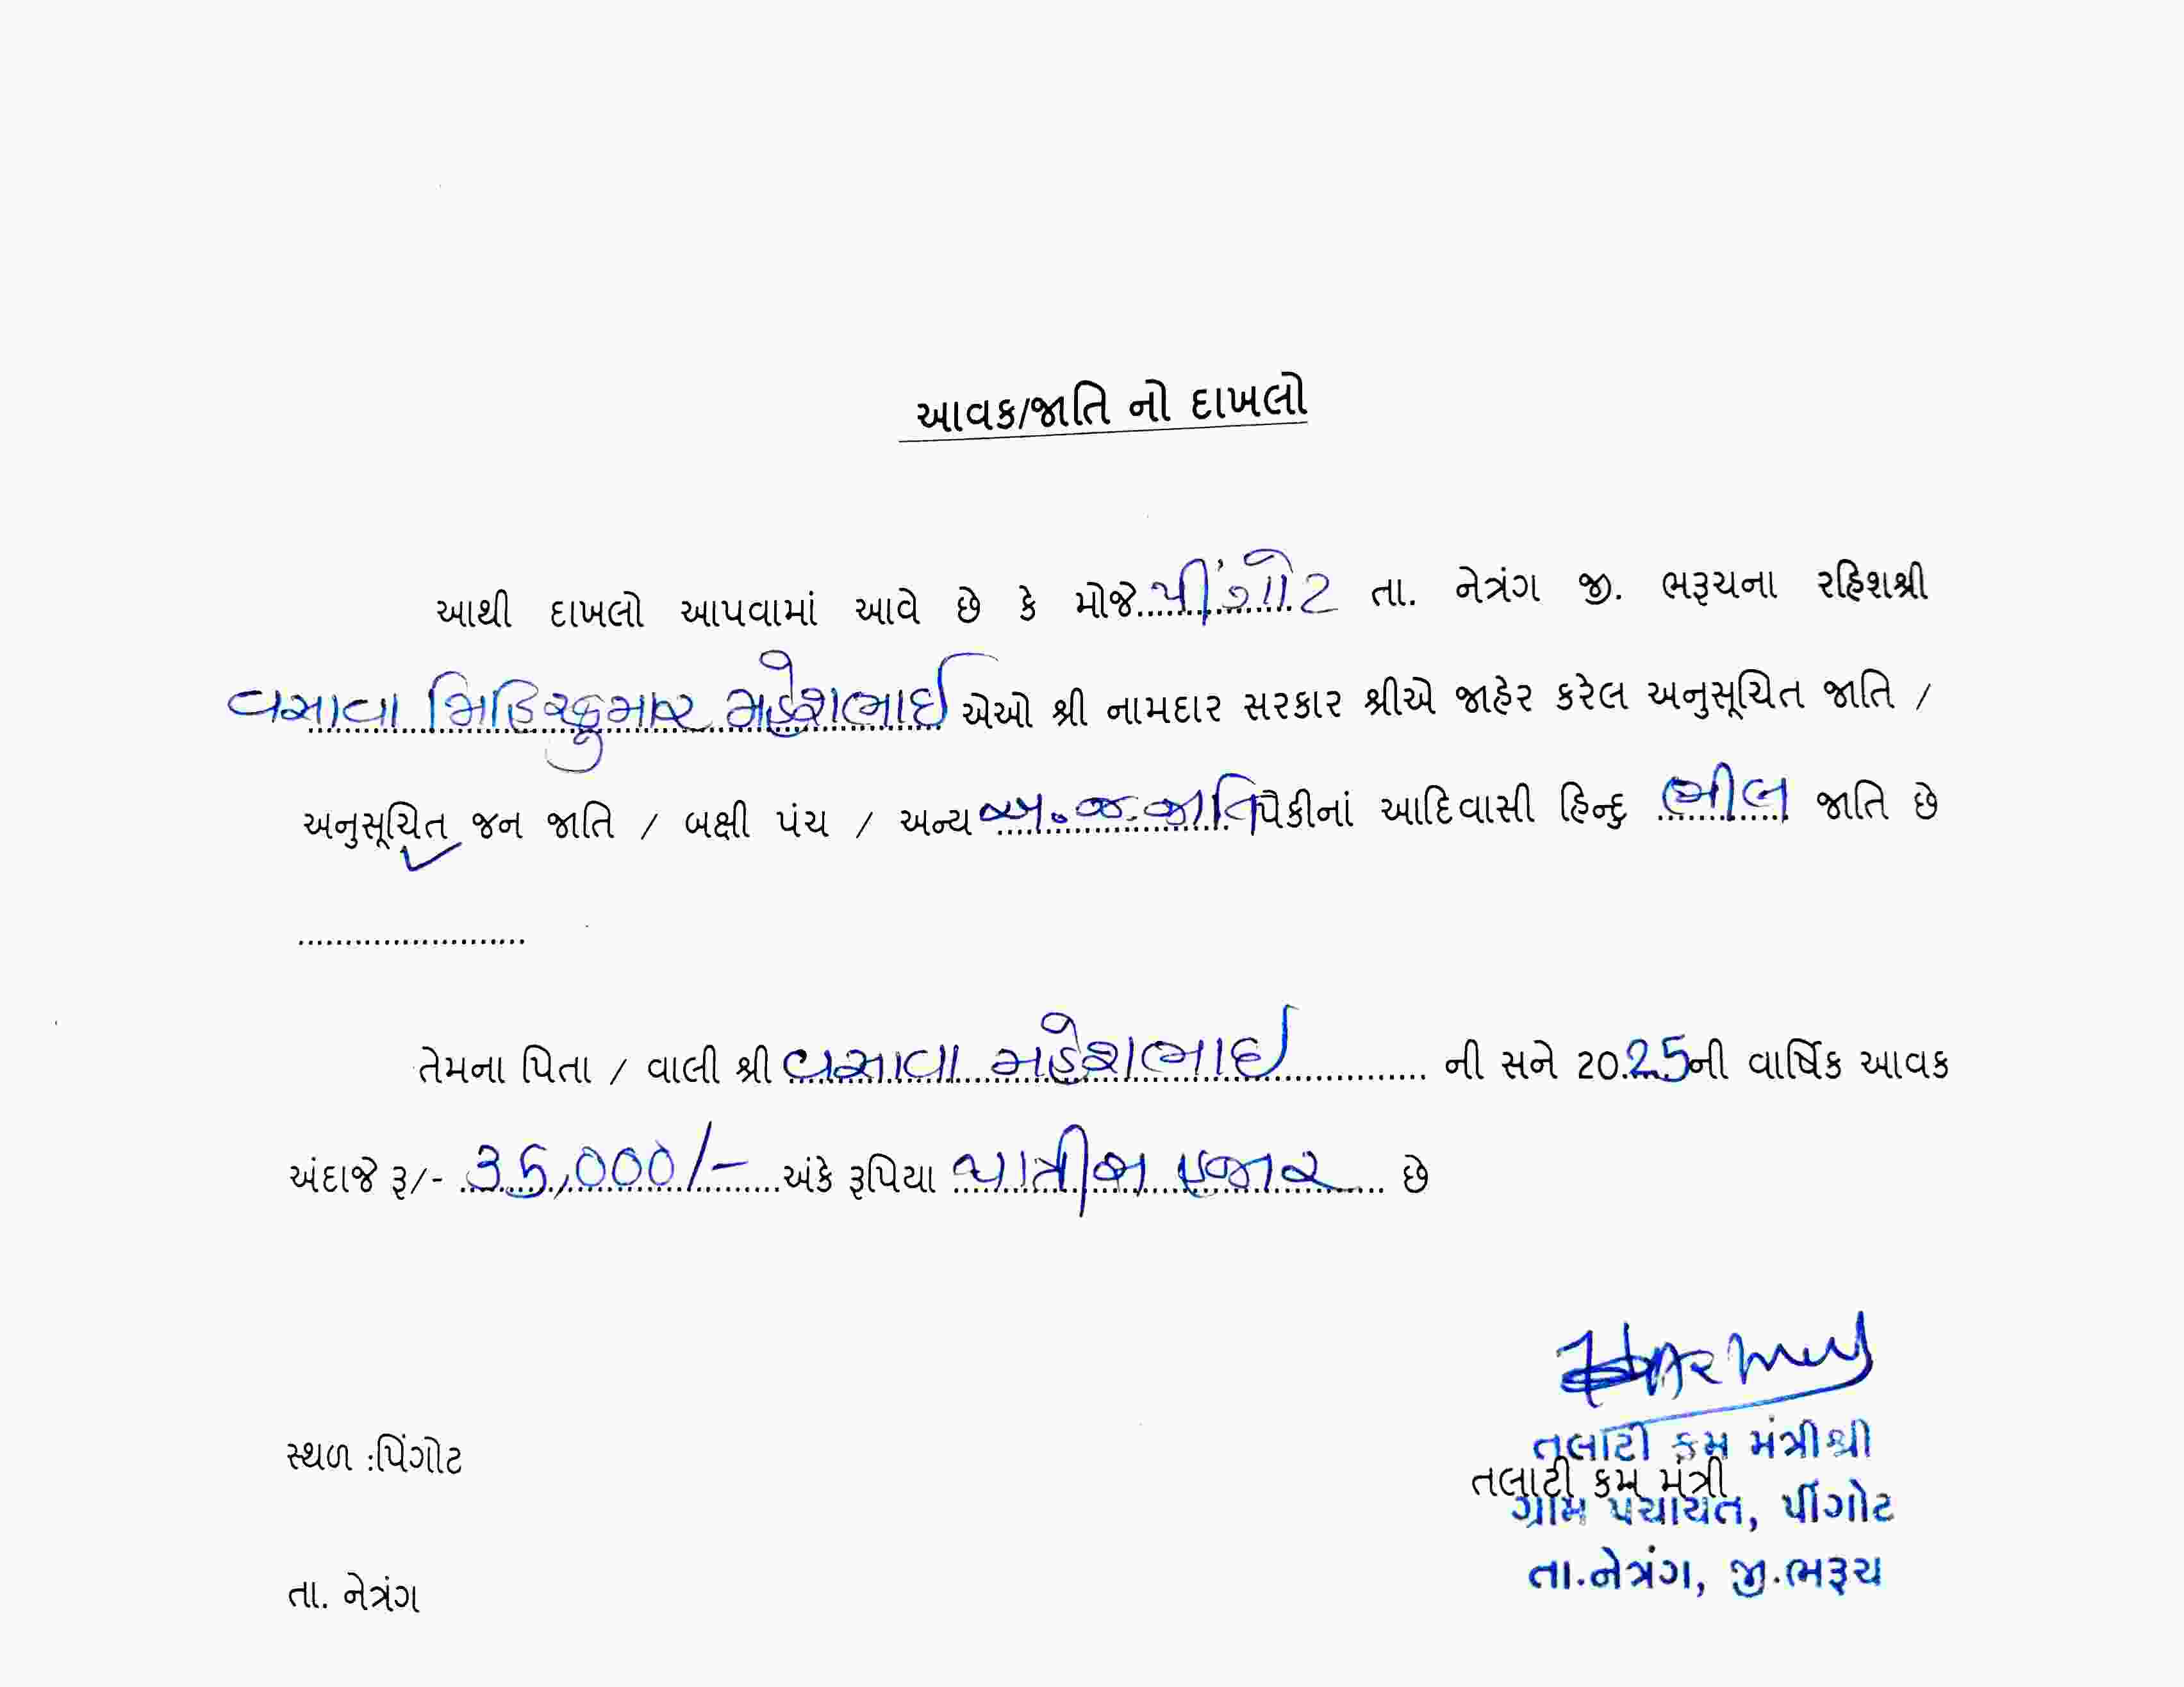 આવક/જાતિ નો દાખલો
આથી દાખલો આપવામાં આવે છે કે મોજે..પીંગોટ તા. નેત્રંગ જી. ભરૂચના રહિશશ્રી
વસાવા મિહિરકુમાર મહેશભાઈ એઓ શ્રી નામદાર સરકાર શ્રીએ જાહેર કરેલ અનુસૂચિત જાતિ /
અનુસૂચિત જન જાતિ / બક્ષી પંચ / અન્ય અ.જ.જાતિ પૈકીનાં આદિવાસી હિન્દુ ભીલ જાતિ છે
........................
તેમના પિતા / વાલી શ્રી વસાવા મહેશભાઈ ............... ની સને 20.25ની વાર્ષિક આવક
અંદાજે રૂ/- 35,000/- અંકે રૂપિયા પાત્રીસ હજાર છે
તલાટી કમ મંત્રીશ્રી
સ્થળ :પિંગોટ
તલાટી કમ મંત્રી
ગ્રામ પંચાયત, પીંગોટ
તા.નેત્રંગ, જી.ભરૂચ
તા. નેત્રંગ